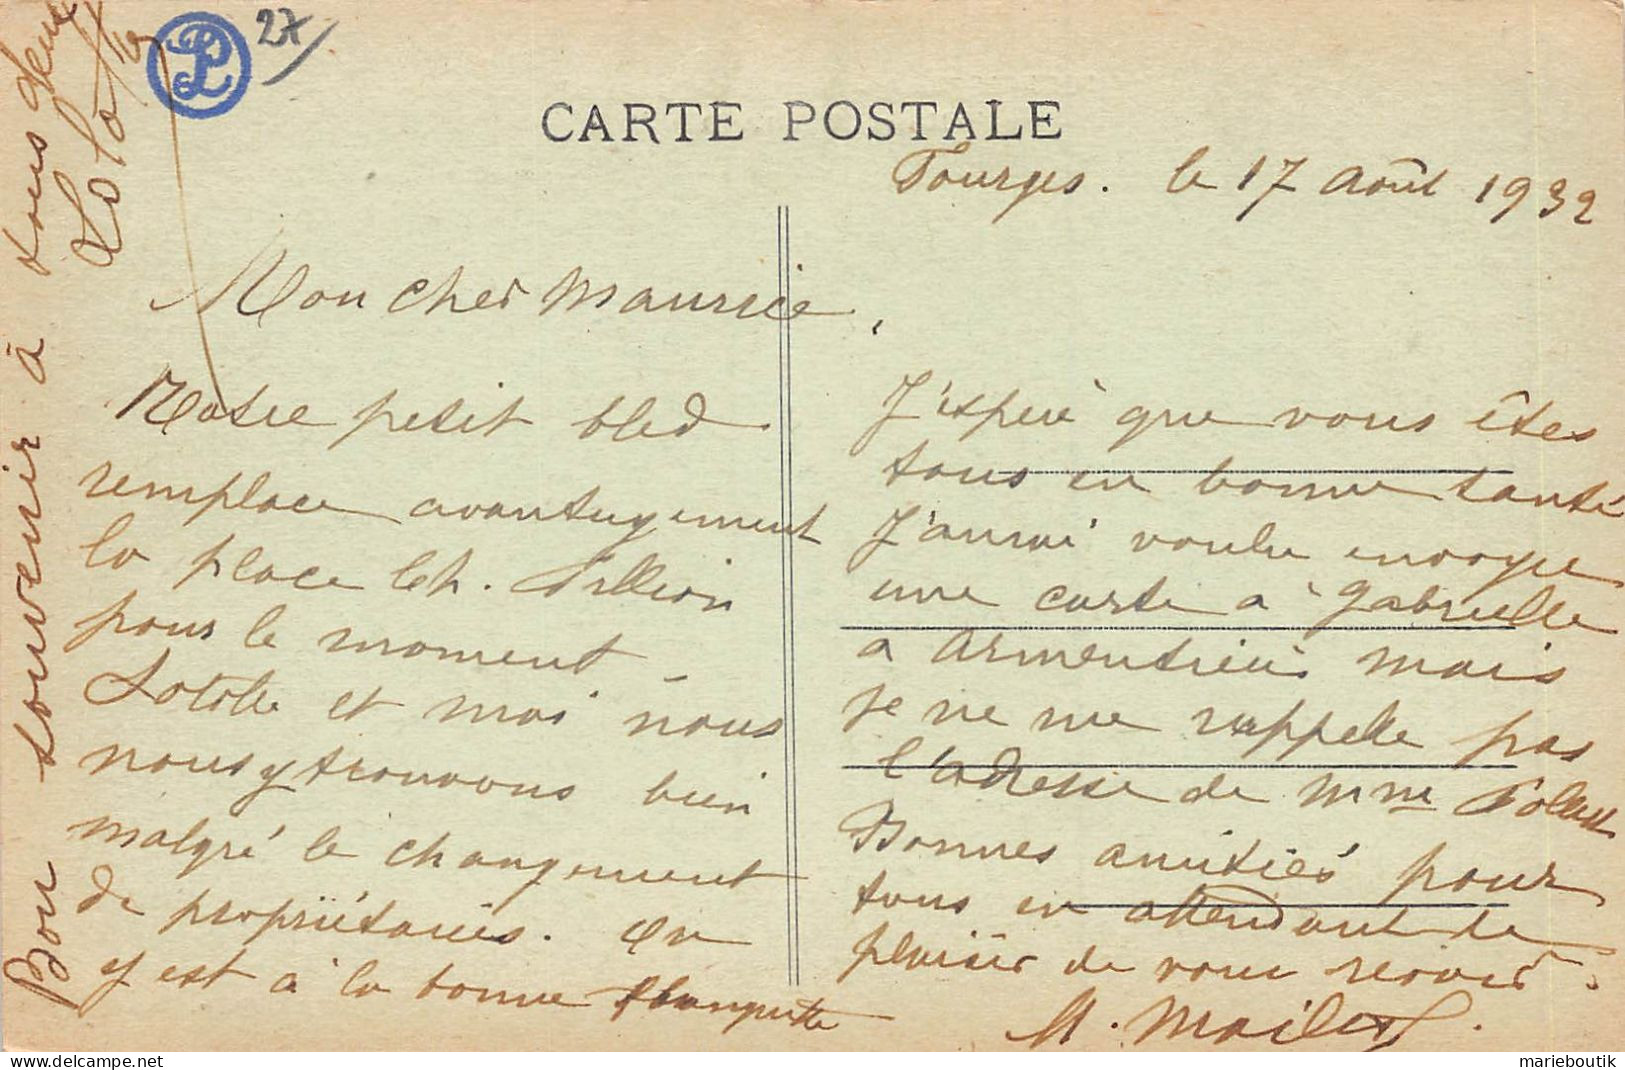 27
CARTE POSTALE
Fourges. le 17 Août 1932
Mon cher Maurice,
Notre petit bled
remplace avantugement
la place Ch.
pour le moment
et moi nous
nous y trouvons bien
malgré le changement
de propriétaires. On
y est à la bonne flanquette
J'espère que vous êtes
tous en bonne santé
J'aurai voulu envoyer
une carte a Gabrielle
a Armentières mais
je ne me rappelle pas
l'adresse de Mme
Bonnes amitiés pour
tous en attendant le
plaisir de vous revoir.
M.
Bon souvenir à vous deux
Lolotte
marieboutik